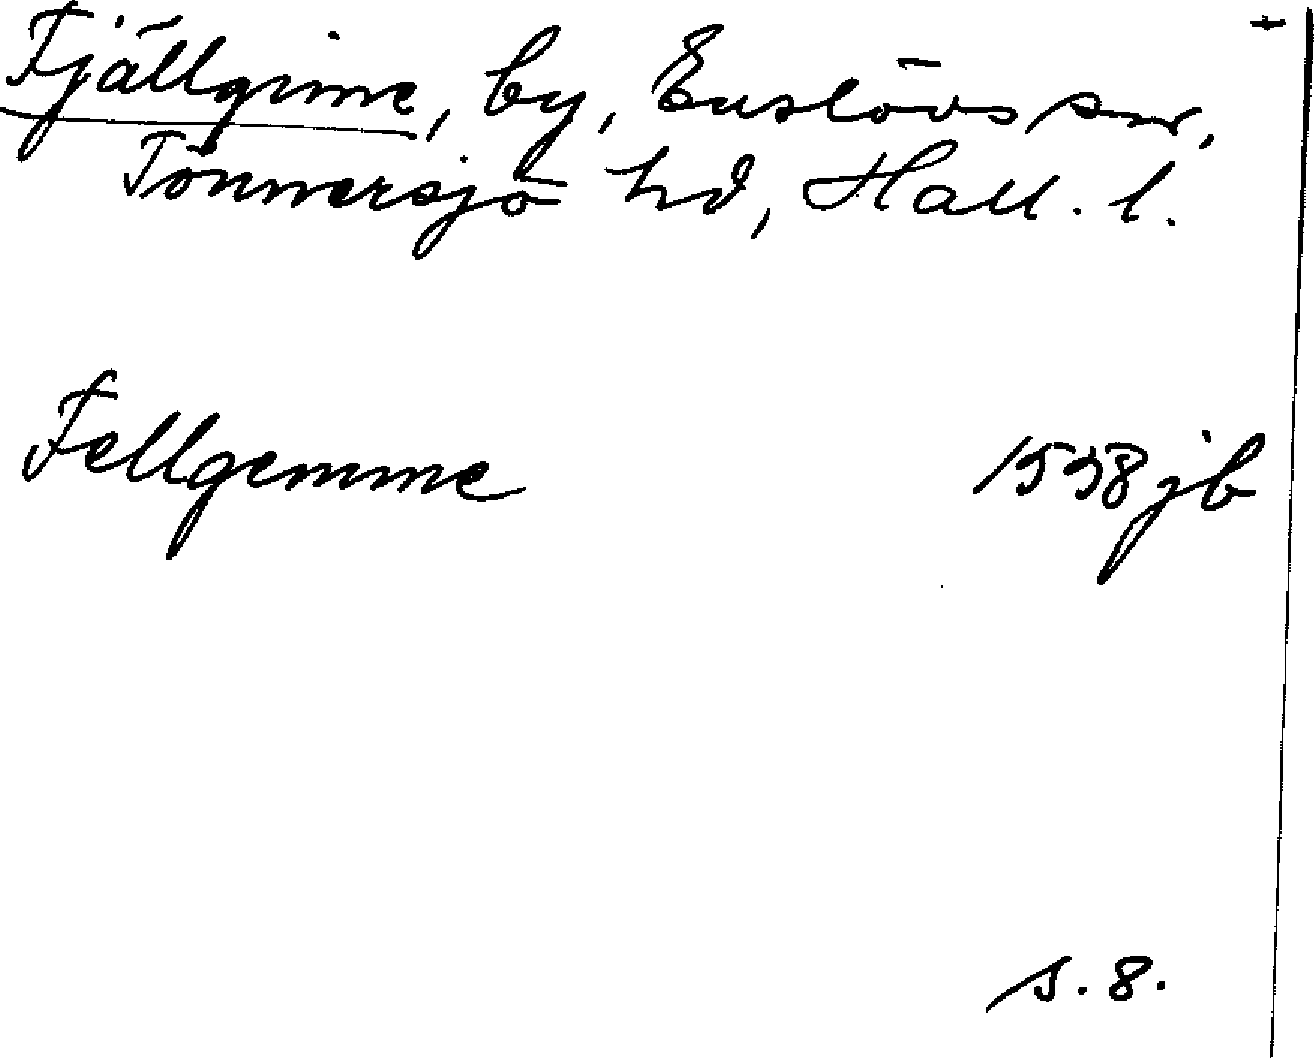 Fjällgime, by, Enslövs sn,
Tönnersjö hd, Hall. l.
Fellgemme 1558 jb
s. 8.